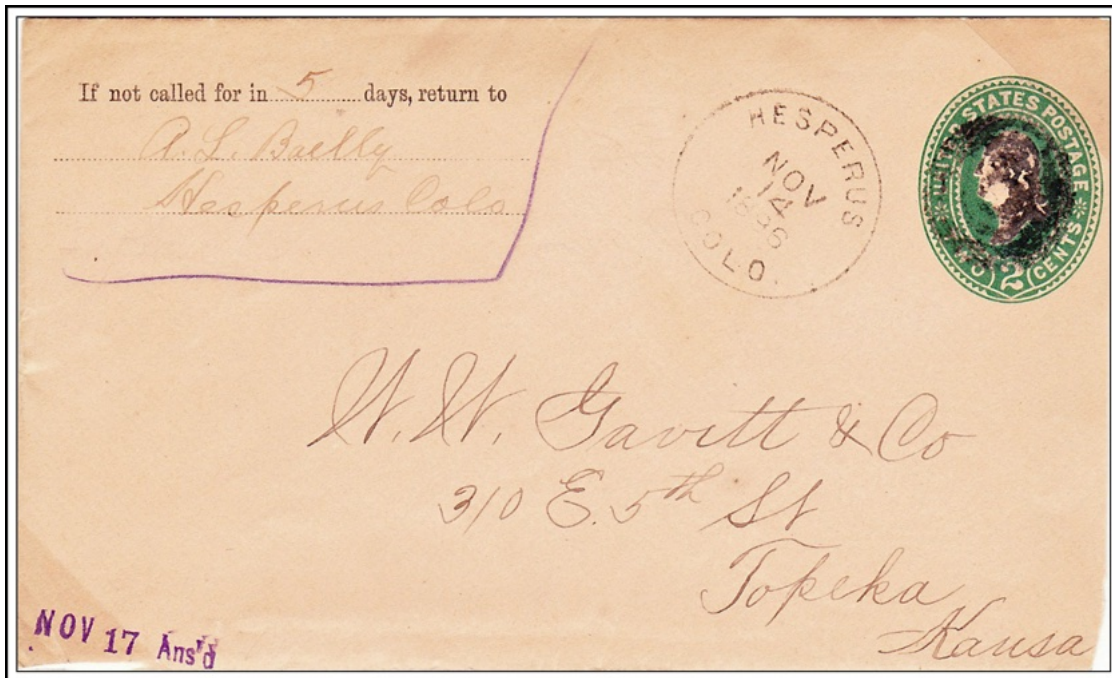 If not called for in 5 days, return to
A. L. Bailly
Hesperus Colo
HESPERUS
NOV
14
1896
COLO.
UNITED STATES POSTAGE
TWO 2 CENTS
W. W. Gavitt & Co
310 E. 5th St
Topeka
Kansa
NOV 17 Ans'd